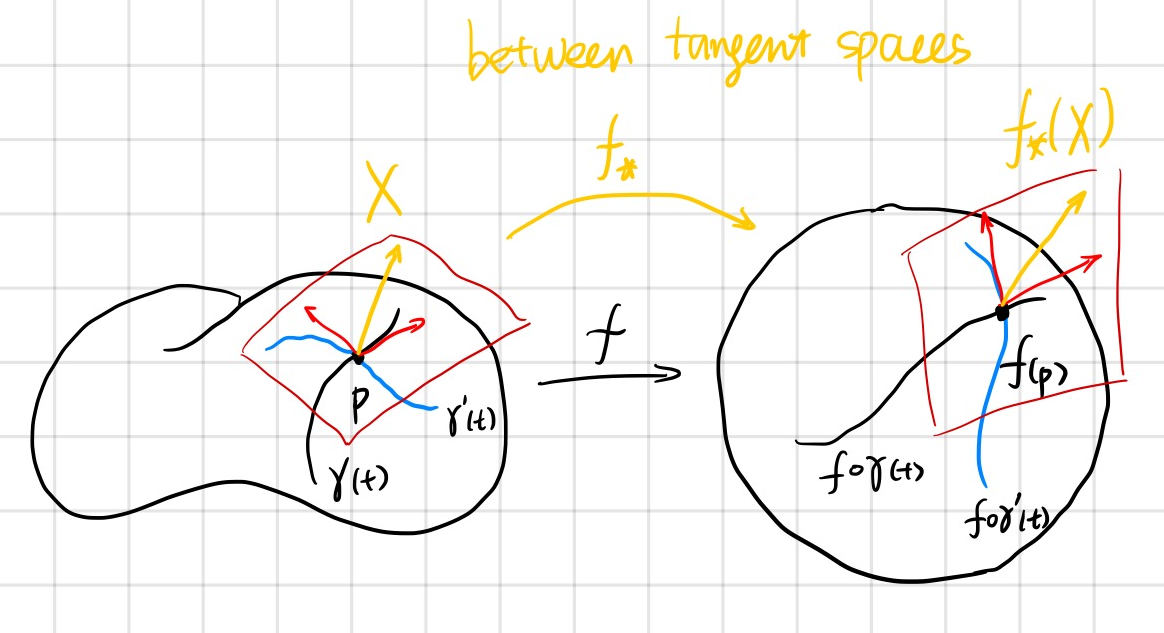 between tangent spaces
f⁎
f⁎(X)
X
f
p
γ'(t)
γ(t)
f(p)
f∘γ(t)
f∘γ'(t)